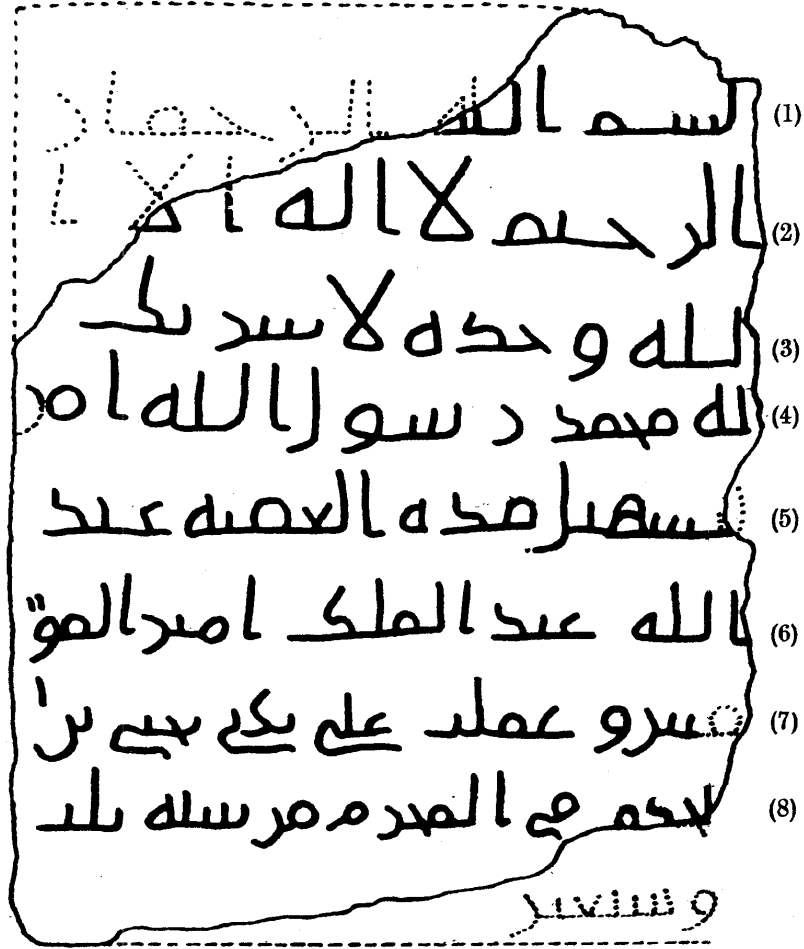 (1) بسم الله الرحمان
(2) الرحيم لا اله الا ا
(3) لله وحده لا شريك
(4) له محمد رسول الله امر
(5) بتسهيل هذه العقبه عبد
(6) الله عبد الملك امير المؤ
(7) منين وعملت على يدي يحيى بن ا
(8) لحكم في المحرم من سنه ثلث
وسبعين